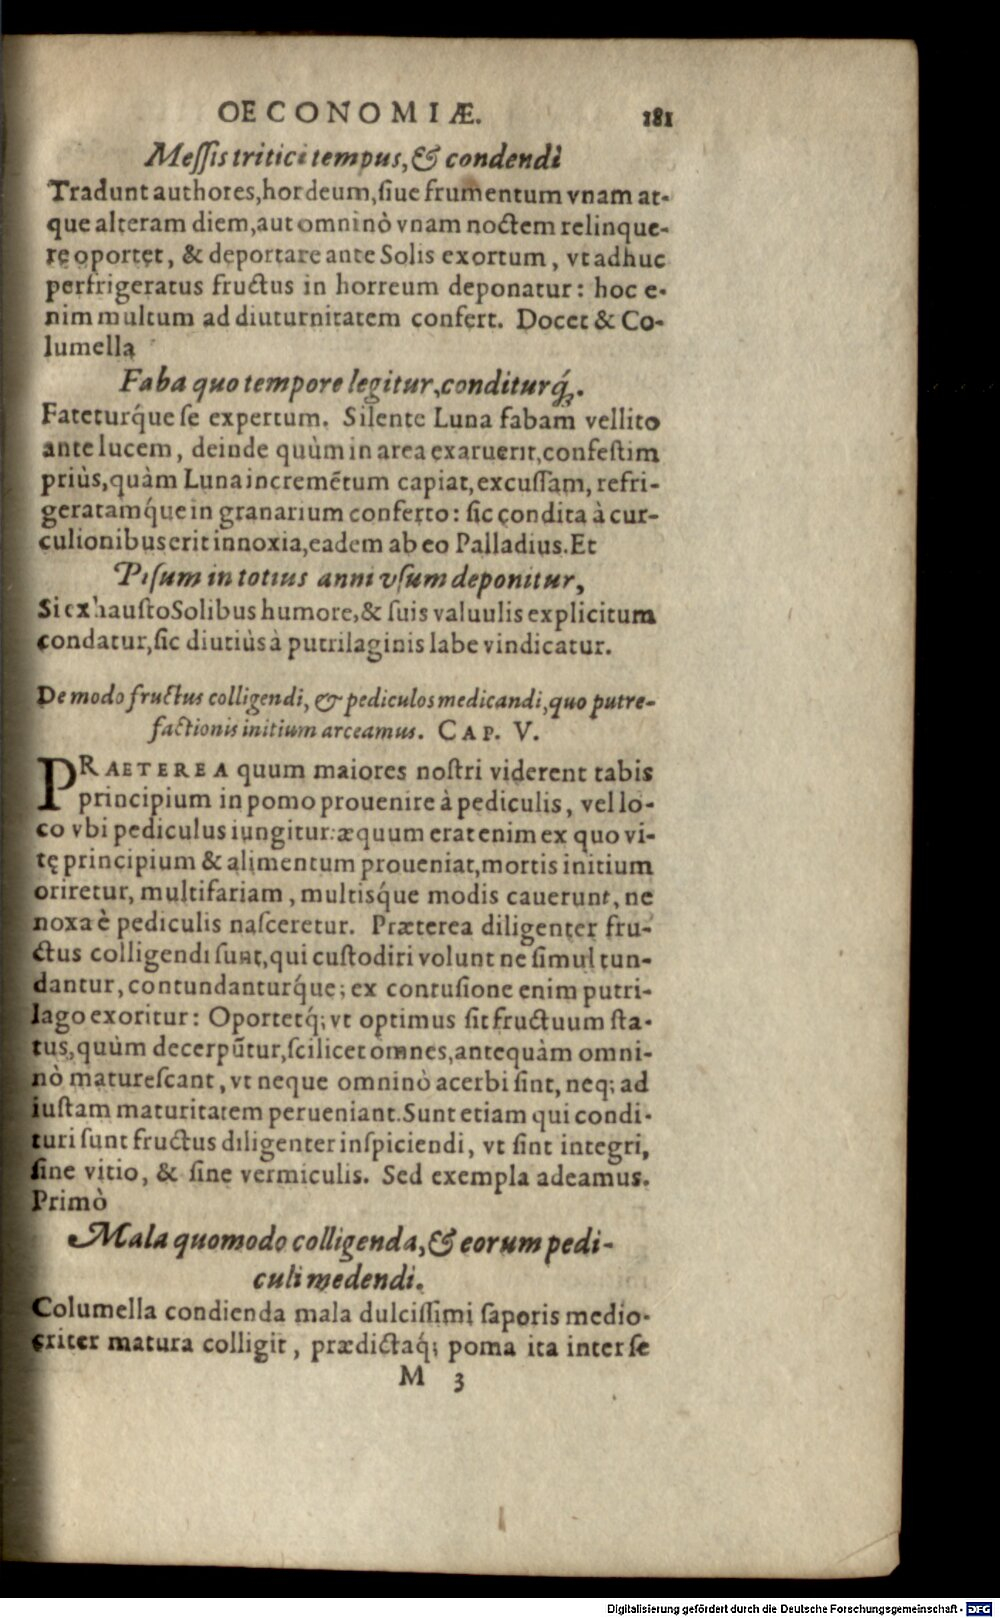 OECONOMIÆ. 181
Meſſis tritici tempus, & condendi
Tradunt authores, hordeum, ſiue frumentum vnam at-
que alteram diem, aut omninò vnam noctem relinque-
rę oportet, & deportare ante Solis exortum, vt adhuc
perfrigeratus fructus in horreum deponatur: hoc e-
nim multum ad diuturnitatem confert. Docet & Co-
lumella
Faba quo tempore legitur, conditurq́;.
Fateturq́ue ſe expertum. Silente Luna fabam vellito
ante lucem, deinde quùm in area exaruerit, confeſtim
priùs, quàm Luna incremẽtum capiat, excuſſam, refri-
geratamq́ue in granarium conferto: ſic condita à cur-
culionibus erit innoxia, eadem ab eo Palladius. Et
Piſum in totius anni vſum deponitur,
Si exhauſto Solibus humore, & ſuis valuulis explicitum
condatur, ſic diutiùs à putrilaginis labe vindicatur.
De modo fructus colligendi, & pediculos medicandi, quo putre-
factionis initium arceamus. CAP. V.
PRAETEREA quum maiores noſtri viderent tabis
principium in pomo prouenire à pediculis, vel lo-
co vbi pediculus iungitur: æquum erat enim ex quo vi-
tę principium & alimentum proueniat, mortis initium
oriretur, multifariam, multiſq́ue modis cauerunt, ne
noxa è pediculis naſceretur. Præterea diligenter fru-
ctus colligendi ſunt, qui cuſtodiri volunt ne ſimul tun-
dantur, contundanturq́ue; ex contuſione enim putri-
lago exoritur: Oportetq́; vt optimus ſit fructuum ſta-
tus, quùm decerpũtur, ſcilicet omnes, antequàm omni-
nò matureſcant, vt neque omninò acerbi ſint, neq; ad
iuſtam maturitatem perueniant. Sunt etiam qui condi-
turi ſunt fructus diligenter inſpiciendi, vt ſint integri,
ſine vitio, & ſine vermiculis. Sed exempla adeamus.
Primò
Mala quomodo colligenda, & eorum pedi-
culi medendi.
Columella condienda mala dulciſſimi ſaporis medio-
criter matura colligit, prædictaq́; poma ita inter ſe
M 3
Digitalisierung gefördert durch die Deutsche Forschungsgemeinschaft - DFG